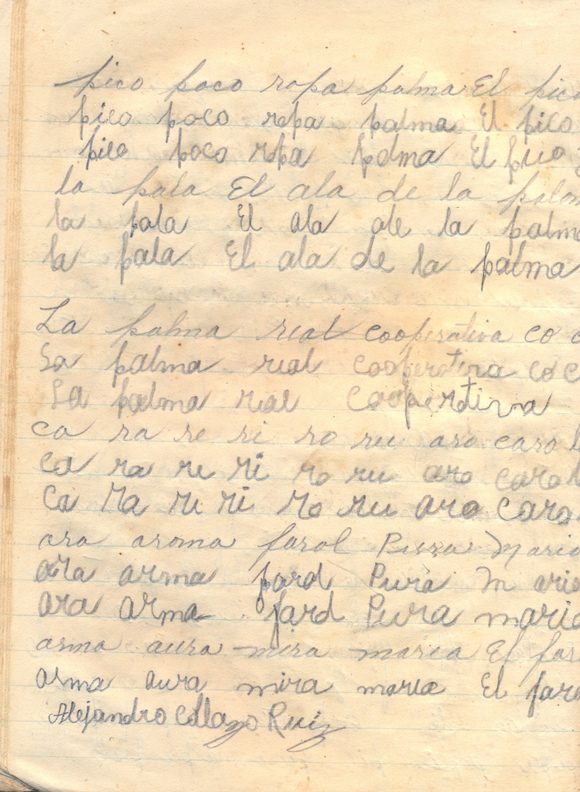 pico poco ropa palma El pico
pico poco ropa palma El pico
pico poco ropa palma El pico
la pala El ala de la palma
la pala El ala de la palma
la pala El ala de la palma
La palma real cooperativa co c
La palma real cooperativa co c
La palma real cooperativa
ca ra re ri ro ru aro caro
ca ra re ri ro ru aro caro
ca ra re ri ro ru aro caro
ara aroma farol Pura Mario
ara arma farol Pura Mario
ara arma farol Pura mario
arma aura mira marea El far
arma aura mira marea El faro
Alejandro Collazo Ruiz